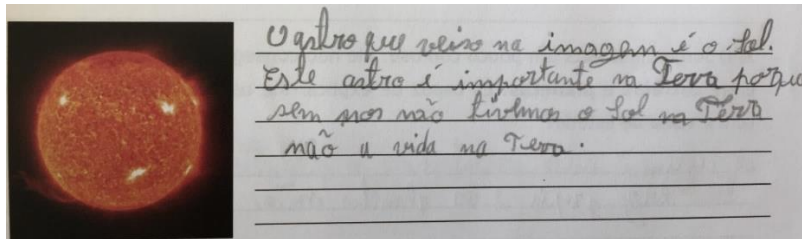 O astro que veiso na imagem é o sol.
Este astro é importante na Terra porqu
sem nos não tivelmos o sol na Terra
não a vida na Terra.